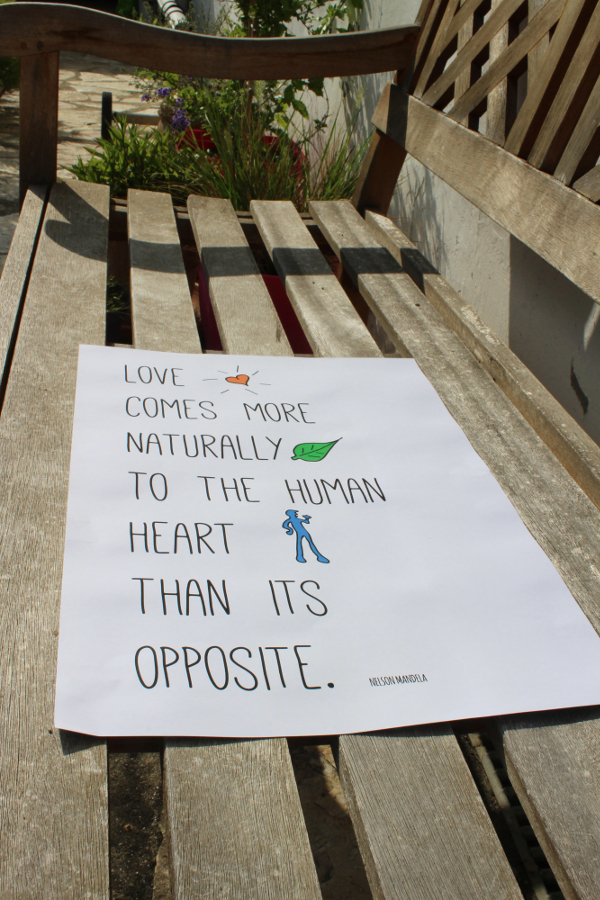 LOVE
COMES MORE
NATURALLY
TO THE HUMAN
HEART
THAN ITS
OPPOSITE.
NELSON MANDELA